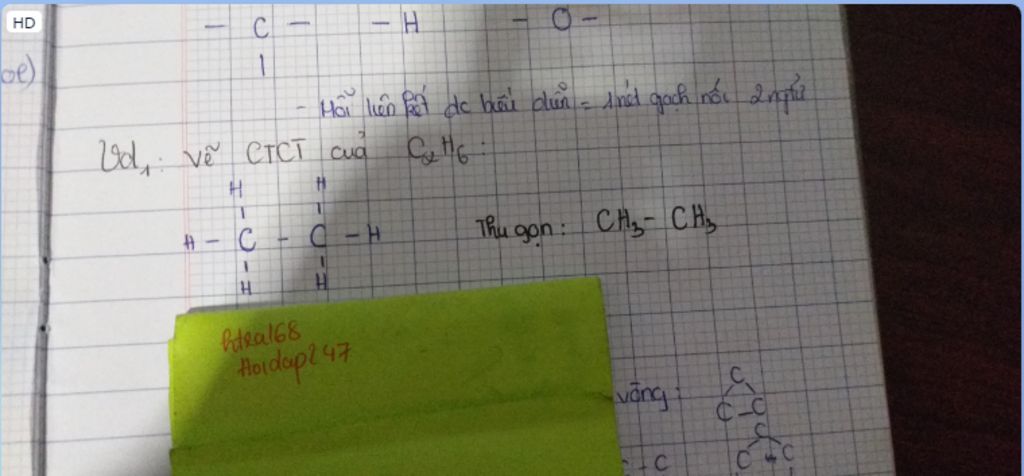 HD
- C - - H - O -
|
- Mỗi liên kết đc biểu diễn = 1 nét gạch nối 2 ngtử
Vd1: Vẽ CTCT của C2H6:
H H
| |
H - C - C - H Thu gọn: CH3 - CH3
| |
H H
Hoidap247
vòng: C
C - C
C
C C
- C